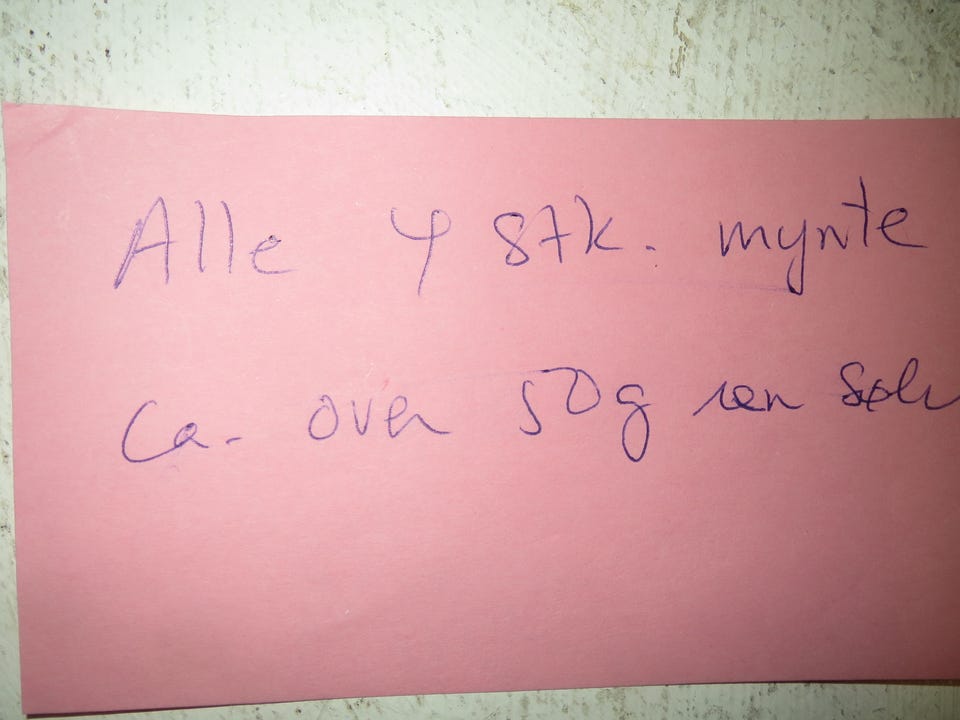 Alle 4 stk. mynte
Ca. over 50g ren Sølv